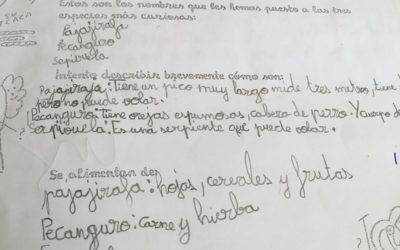 Estos son los nombres que les hemos puesto a las tres
especies más curiosas:
Pajajirafa
Pecanguro
Serpivuela
Intento describir brevemente cómo son:
Pajajirafa: Tiene un pico muy largo mide tres metros, tiene
pero no puede volar.
Pecanguro: Tiene orejas espumosas, cabeza de perro. Y cuerpo de
Serpivuela: Es una serpiente que puede volar.
Se alimentan de:
pajajirafa: hojas, cereales y frutas
Pecanguro: carne y hierba